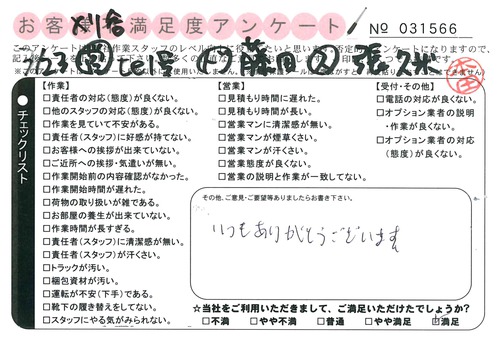 お客様満足度アンケート
№ 031566
【作業】
□責任者の対応(態度)が良くない。
□他のスタッフの対応(態度)が良くない。
□作業を見ていて不安がある。
□責任者(スタッフ)に好感が持てない。
□お客様への挨拶が出来ていない。
□ご近所への挨拶・気遣いが無い。
□作業開始前の内容確認がなかった。
□作業開始時間が遅れた。
□荷物の取り扱いが雑である。
□お部屋の養生が出来ていない。
□作業時間が長すぎる。
□責任者(スタッフ)に清潔感が無い。
□責任者(スタッフ)が汗くさい。
□トラックが汚い。
□梱包資材が汚い。
□運転が不安(下手)である。
□靴下の履き替えをしてない。
□スタッフにやる気がみられない。
【営業】
□見積もり時間に遅れた。
□見積もり時間が長い。
□営業マンに清潔感が無い。
□営業マンが煙草くさい。
□営業マンが汗くさい。
□営業態度が良くない。
□営業の説明と作業が一致してない。
【受付・その他】
□電話の対応が良くない。
□オプション業者の説明
・作業が良くない。
□オプション業者の対応
(態度)が良くない。
チェックリスト
その他、ご意見・ご要望等ありましたらお書き下さい。
いつもありがとうございます
☆当社をご利用いただきまして、ご満足いただけたでしょうか?
□不満 □やや不満 □普通 □やや満足 ☑満足